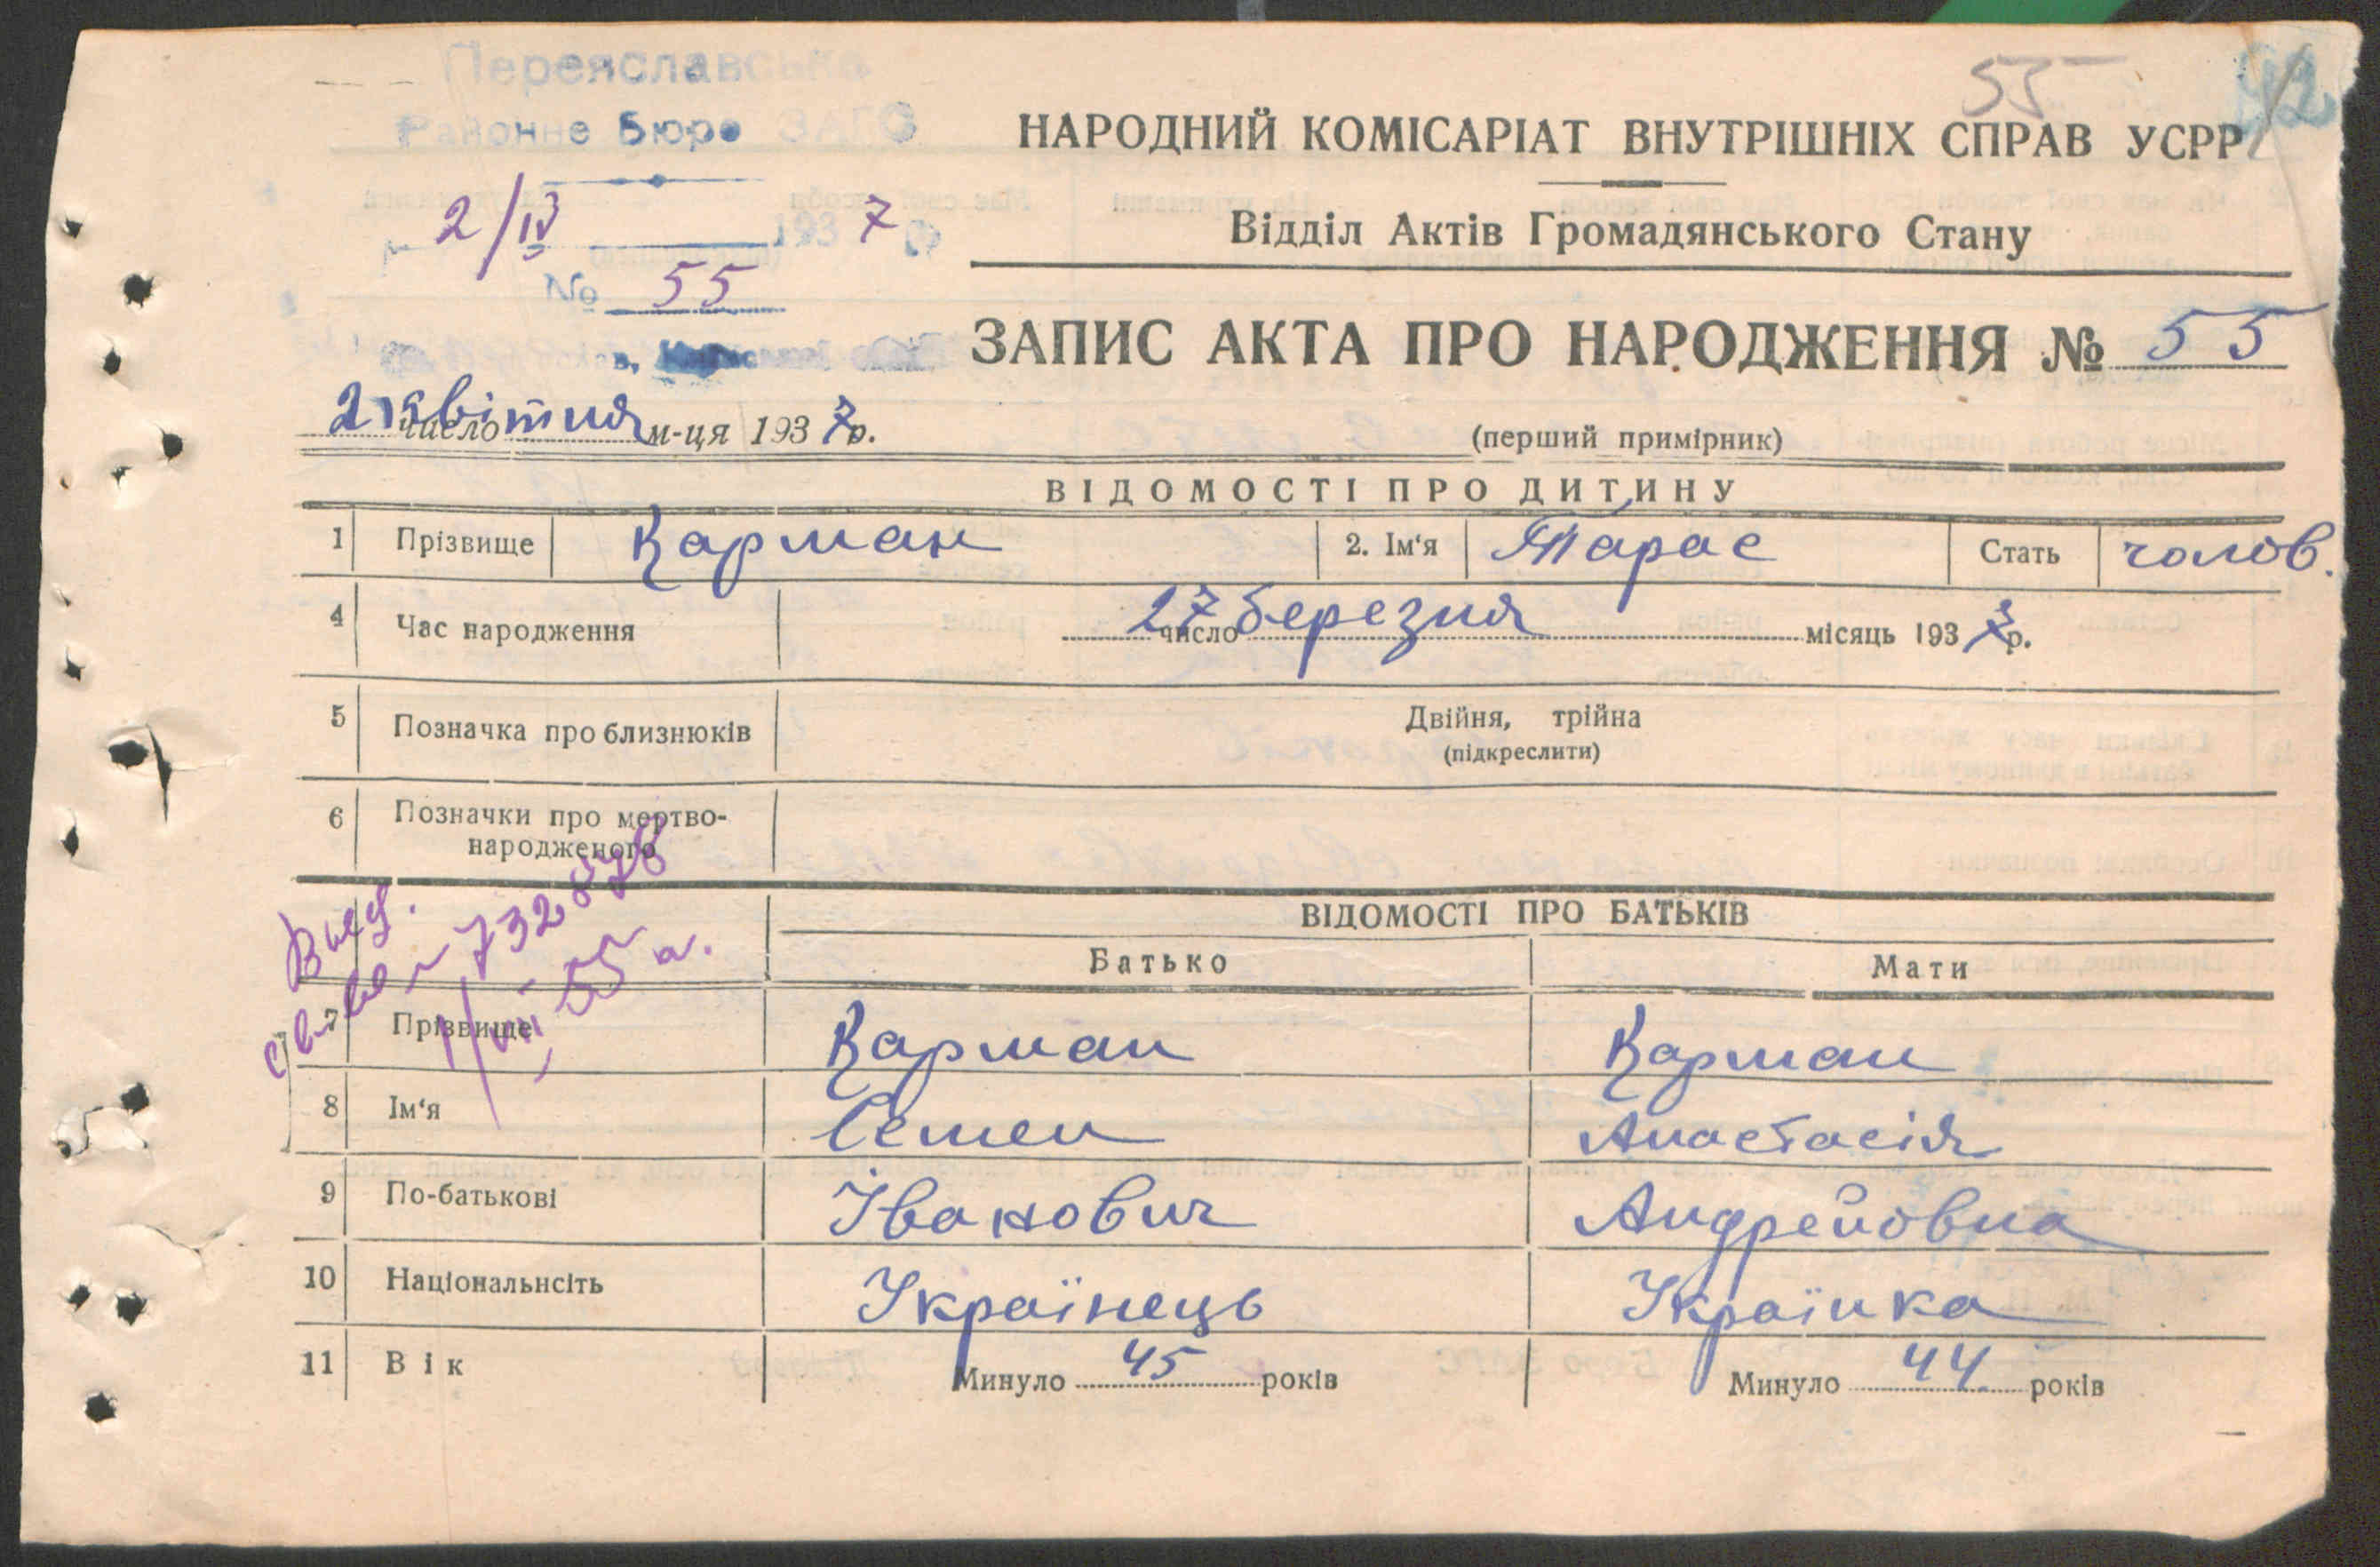 Переяславська
Районне Бюро ЗАГС
55
42
НАРОДНИЙ КОМІСАРІАТ ВНУТРІШНІХ СПРАВ УСРР
2/IV 1937
Відділ Актів Громадянського Стану
№ 55
ЗАПИС АКТА ПРО НАРОДЖЕННЯ № 55
2 число квітня м-ця 1937 р.
(перший примірник)
ВІДОМОСТІ ПРО ДИТИНУ
1 Прізвище Карман 2. Ім'я Тарас Стать чолов.
4 Час народження 27 число березня місяць 1937 р.
5 Позначка про близнюків Двійня, трійна
(підкреслити)
6 Позначки про мертво-
народженого
ВІДОМОСТІ ПРО БАТЬКІВ
Батько Мати
7 Прізвище Карман Карман
8 Ім'я Семен Анастасія
9 По-батькові Іванович Андрейовна
10 Національнсіть Українець Українка
11 Вік Минуло 45 років Минуло 44 років